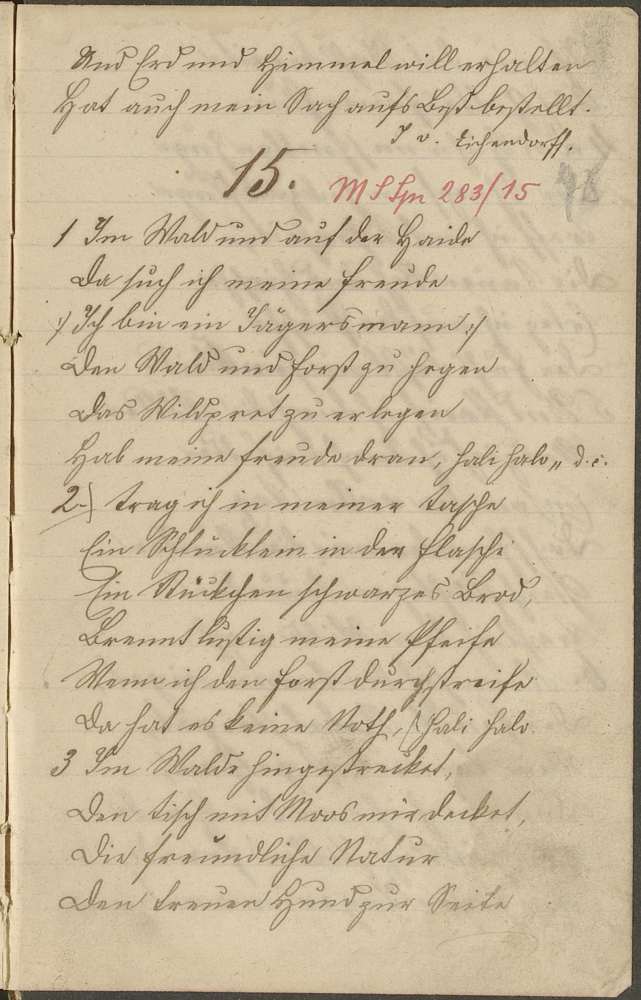 Und Erd und Himmel will erhalten
Hat auch mein Sach aufs Best bestellt.
J v. Eichendorff.
15.
MSSpr 283/15
1 Im Wald und auf der Haide
Da such ich meine Freude
:/ Ich bin ein Jägersmann :/
Den Wald und Forst zu hegen
Das Wildpret zu erlegen
Hab meine Freude dran, hali halo „ d. c.
2.) trag ich in meiner Tasche
Ein Schlücklein in der Flasche
Ein Stückchen schwarzes Brod,
Brennt lustig meine Pfeife
Wenn ich den Forst durchstreife
Da hat es keine Noth, /: Hali halo
3 Im Walde hingestrecket,
Den Tisch mit Moos mir decket,
Die freundliche Natur
Den treuen Hund zur Seite